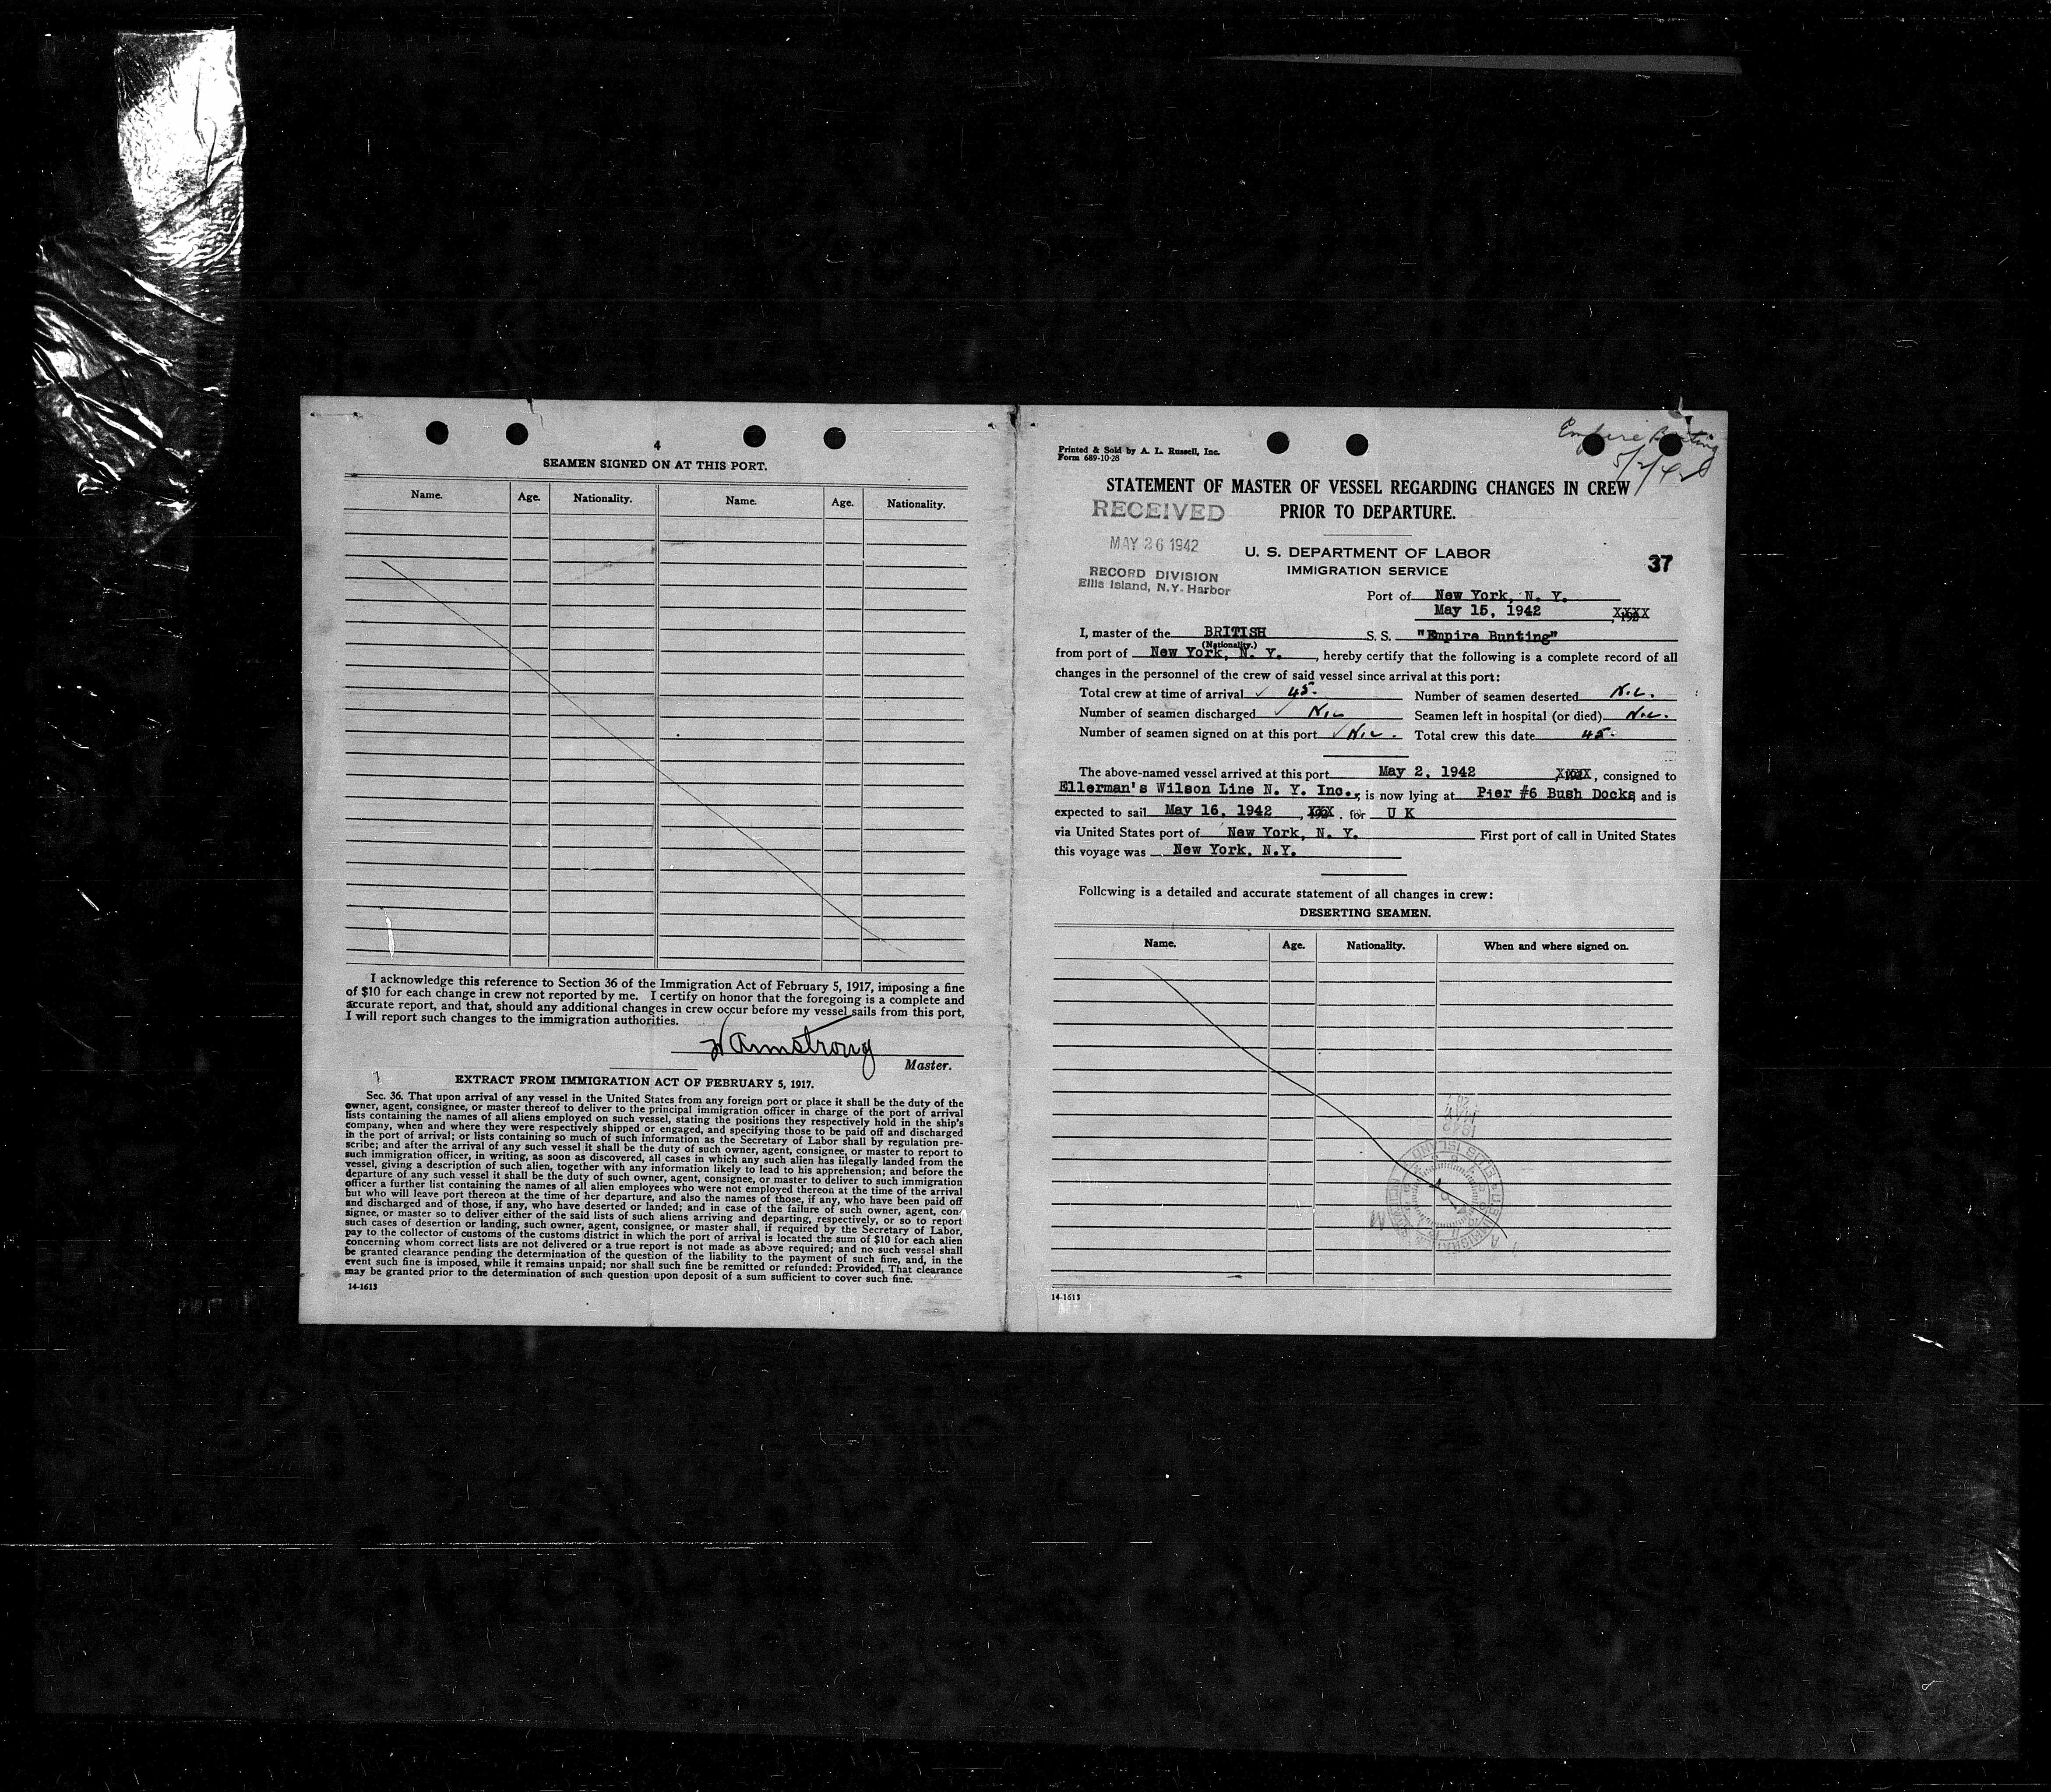 4
SEAMEN SIGNED ON AT THIS PORT.
Name. Age. Nationality. Name. Age. Nationality.
I acknowledge this reference to Section 36 of the Immigration Act of February 5, 1917, imposing a fine
of $10 for each change in crew not reported by me. I certify on honor that the foregoing is a complete and
accurate report, and that, should any additional changes in crew occur before my vessel sails from this port,
I will report such changes to the immigration authorities.
W Armstrong
Master.
EXTRACT FROM IMMIGRATION ACT OF FEBRUARY 5, 1917.
Sec. 36. That upon arrival of any vessel in the United States from any foreign port or place it shall be the duty of the
owner, agent, consignee, or master thereof to deliver to the principal immigration officer in charge of the port of arrival
lists containing the names of all aliens employed on such vessel, stating the positions they respectively hold in the ship's
company, when and where they were respectively shipped or engaged, and specifying those to be paid off and discharged
in the port of arrival; or lists containing so much of such information as the Secretary of Labor shall by regulation pre-
scribe; and after the arrival of any such vessel it shall be the duty of such owner, agent, consignee, or master to report to
such immigration officer, in writing, as soon as discovered, all cases in which any such alien has illegally landed from the
vessel, giving a description of such alien, together with any information likely to lead to his apprehension; and before the
departure of any such vessel it shall be the duty of such owner, agent, consignee, or master to deliver to such immigration
officer a further list containing the names of all alien employees who were not employed thereon at the time of the arrival
but who will leave port thereon at the time of her departure, and also the names of those, if any, who have been paid off
and discharged and of those, if any, who have deserted or landed; and in case of the failure of such owner, agent, con-
signee, or master so to deliver either of the said lists of such aliens arriving and departing, respectively, or so to report
such cases of desertion or landing, such owner, agent, consignee, or master shall, if required by the Secretary of Labor,
pay to the collector of customs of the customs district in which the port of arrival is located the sum of $10 for each alien
concerning whom correct lists are not delivered or a true report is not made as above required; and no such vessel shall
be granted clearance pending the determination of the question of the liability to the payment of such fine, and, in the
event such fine is imposed, while it remains unpaid; nor shall such fine be remitted or refunded: Provided, That clearance
may be granted prior to the determination of such question upon deposit of a sum sufficient to cover such fine.
14-1613
Empire Bunting
5/2/42
Printed & Sold by A. L. Russell, Inc.
Form 689-10-28
STATEMENT OF MASTER OF VESSEL REGARDING CHANGES IN CREW
PRIOR TO DEPARTURE.
RECEIVED
MAY 26 1942
RECORD DIVISION
Ellis Island, N.Y. Harbor
U. S. DEPARTMENT OF LABOR
IMMIGRATION SERVICE
37
Port of New York, N. Y.
May 15, 1942 , XXXX
I, master of the BRITISH S. S. "Empire Bunting"
(Nationality.)
from port of New York, N. Y. , hereby certify that the following is a complete record of all
changes in the personnel of the crew of said vessel since arrival at this port:
Total crew at time of arrival ✓ 45. Number of seamen deserted Nil.
Number of seamen discharged ✓ Nil Seamen left in hospital (or died) Nil.
Number of seamen signed on at this port ✓ Nil. Total crew this date 45.
The above-named vessel arrived at this port May 2, 1942 , XXXX, consigned to
Ellerman's Wilson Line N. Y. Inc., is now lying at Pier #6 Bush Docks, and is
expected to sail May 16, 1942 , XXX, for U K
via United States port of New York, N. Y. First port of call in United States
this voyage was New York, N.Y.
Following is a detailed and accurate statement of all changes in crew:
DESERTING SEAMEN.
Name. Age. Nationality. When and where signed on.
14-1613